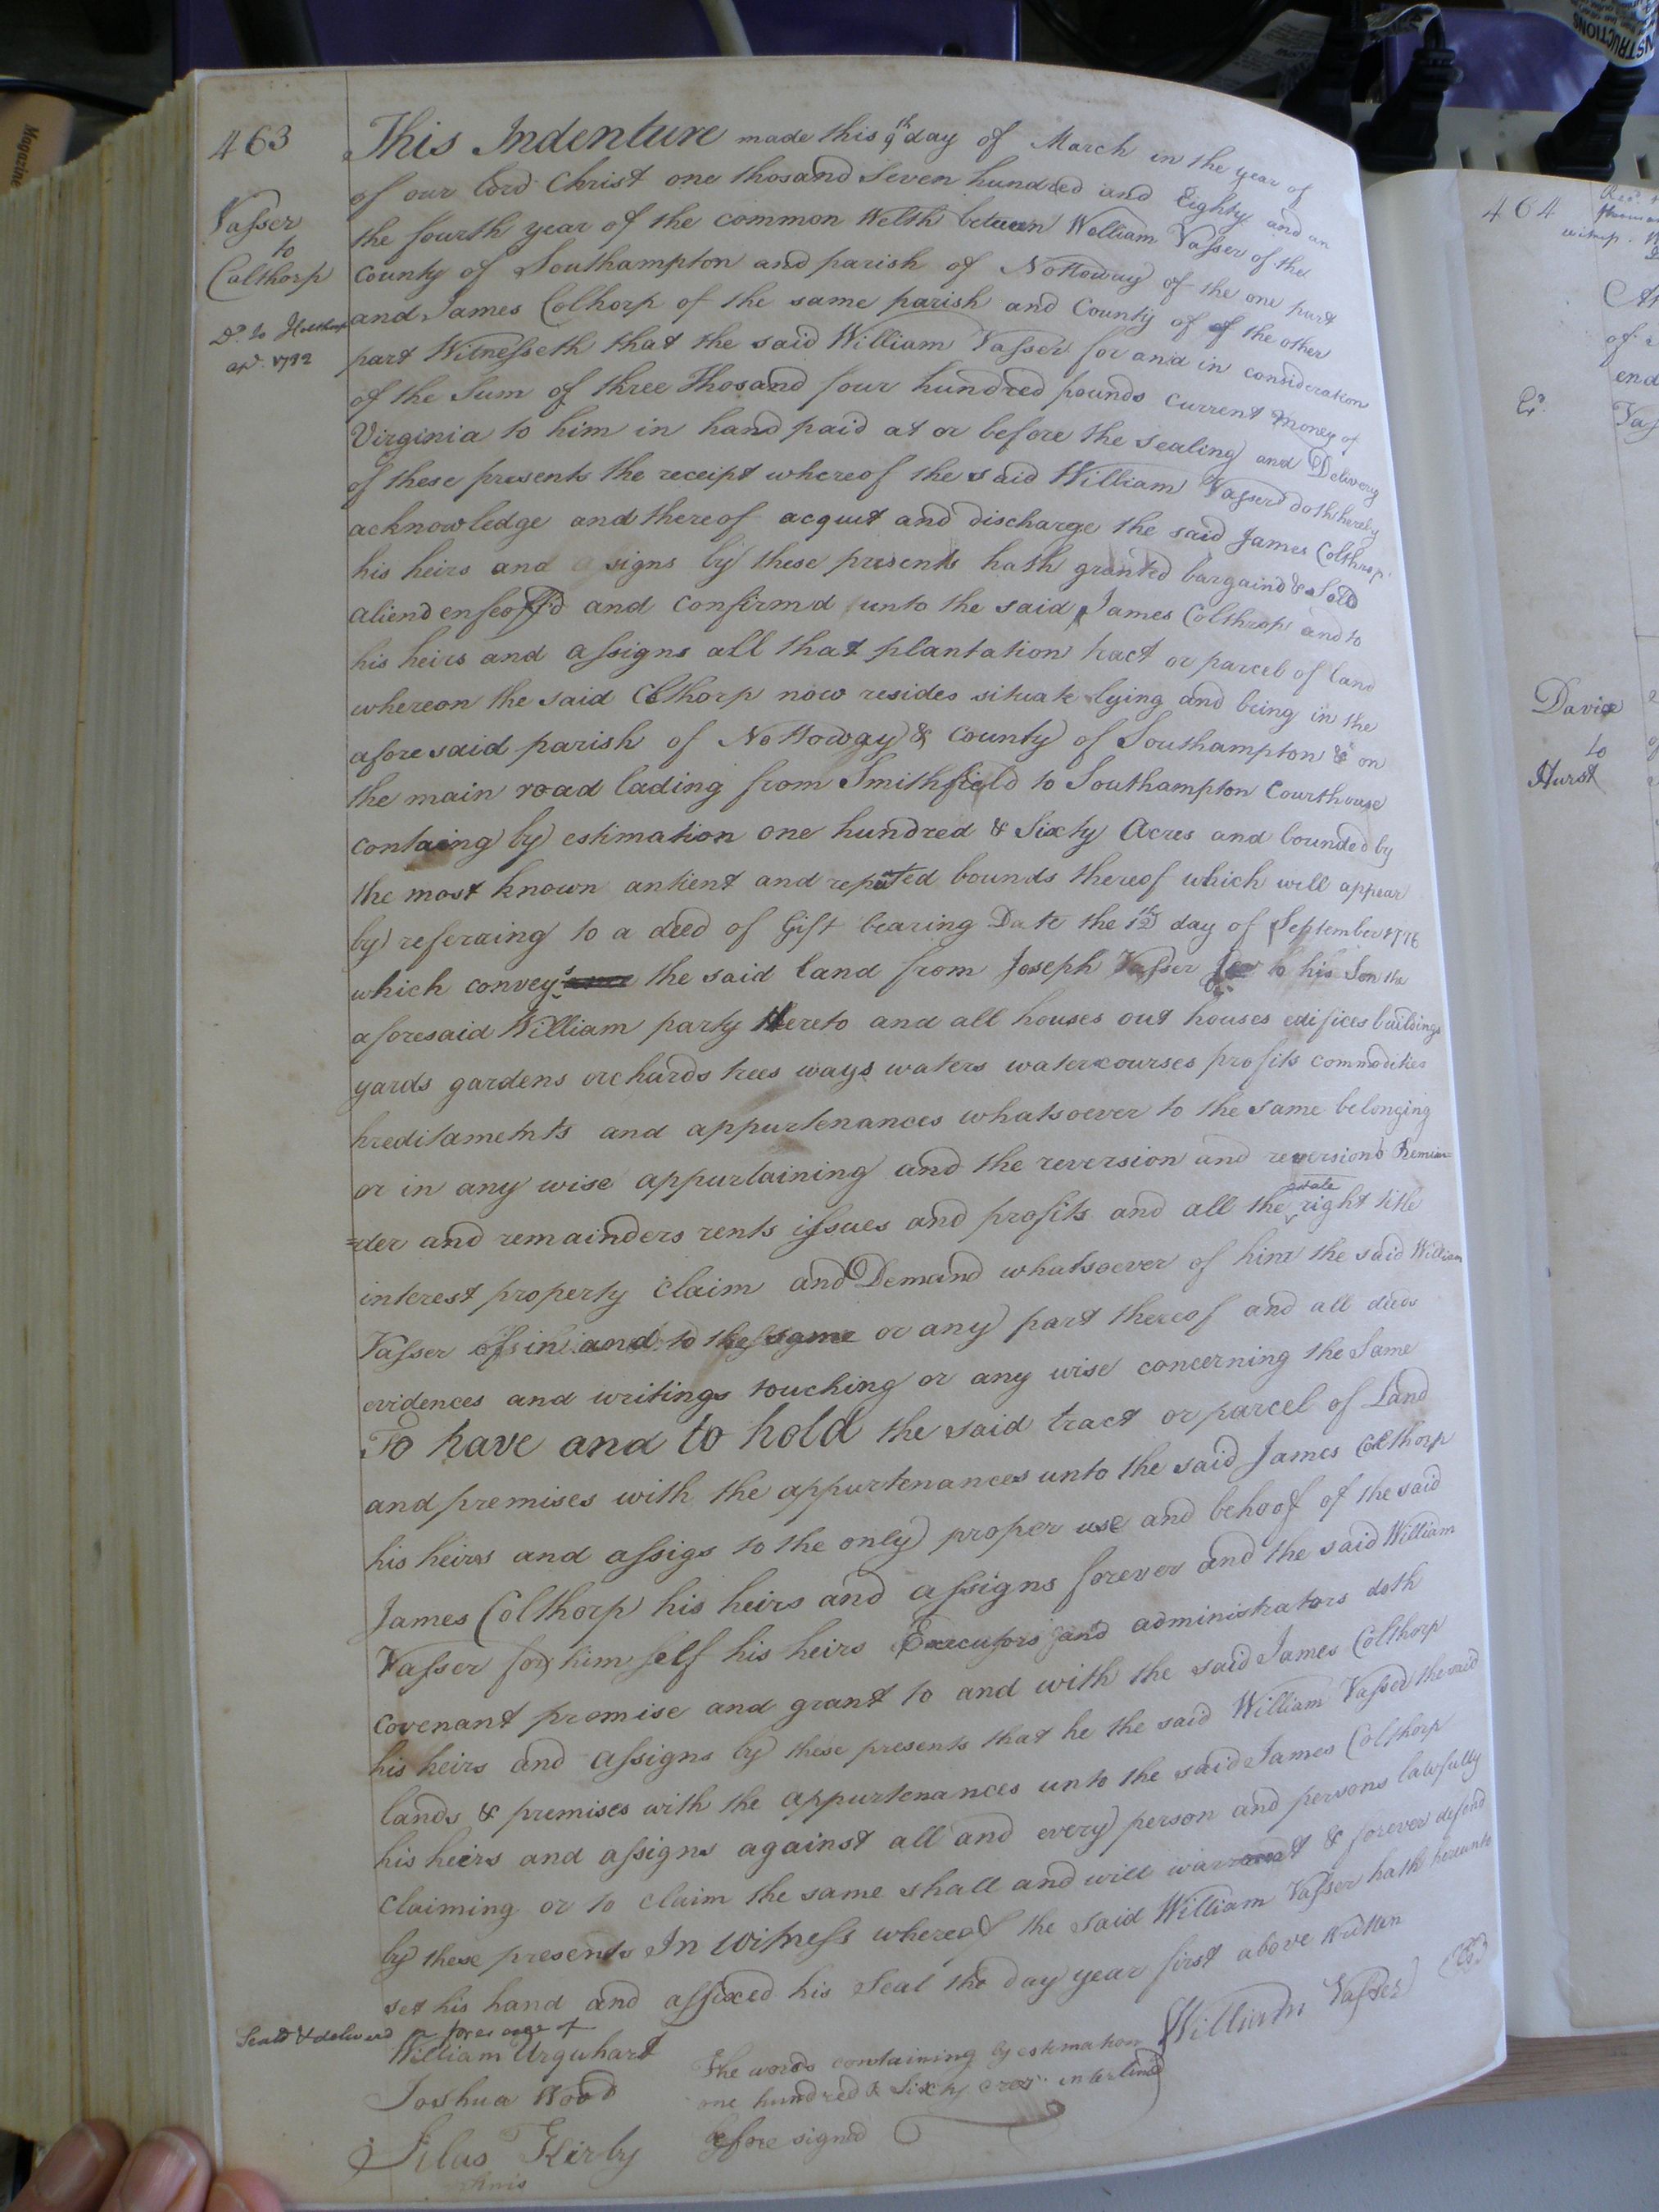 463
Vasser
to
Calthorp
Do. to
apl. 1792
This Indenture made this 9th day of March in the year of
of our Lord Christ one thosand Seven hundred and Eighty and an
the fourth year of the common Welth between William Vasser of the
County of Southampton and parish of Nottoway of the one part
and James Colhorp of the same parish and County of of the other
part Witnesseth that the said William Vasser for and in consideration
of the Sum of three Thosand four hundred pounds current money of
Virginia to him in hand paid at or before the sealing and Delivery
of these presents the receipt whereof the said William Vasser doth hereby
acknowledge and thereof acquit and discharge the said James Colthrop
his heirs and assigns by these presents hath granted bargaind & Sold
aliend enfeoff'd and confirmd unto the said James Colthrop and to
his heirs and assigns all that plantation tract or parcel of land
whereon the said Colthorp now resides situate lying and being in the
aforesaid parish of Nottoway & County of Southampton & on
the main road lading from Smithfield to Southampton Courthouse
containg by estimation one hundred & Sixty Acres and bounded by
the most known antient and reputed bounds thereof which will appear
by referring to a deed of Gift bearing Date the 12th day of September 1776
which conveys the said land from Joseph Vasser to his Son the
aforesaid William party thereto and all houses out houses edifices buildings
yards gardens orchards trees ways waters watercourses profits commodities
hreditaments and appurtenances whatsoever to the same belonging
or in any wise appurtaining and the reversion and reversions Remain=
=der and remainders rents issues and profits and all the estate right title
interest property claim and Demand whatsoever of him the said William
Vasser of in and to the same or any part thereof and all deeds
evidences and writings touching or any wise concerning the Same
To have and to hold the said tract or parcel of Land
and premises with the appurtenances unto the said James Colthorp
his heirs and assigs to the only proper use and behoof of the said
James Colthorp his heirs and assigns forever and the said William
Vasser for him self his heirs Executors and administrators doth
covenant promise and grant to and with the said James Colthorp
his heirs and assigns by these presents that he the said William Vasser the said
lands & premises with the appurtenances unto the said James Colthorp
his heirs and assigns against all and every person and persons lawfully
claiming or to claim the same shall and will warrant & forever defend
by these presents In Witness whereof the said William Vasser hath hereunto
set his hand and affixed his Seal the day year first above written
Seald & deliverd in presence of
William Vasser
William Urquhart
Joshua Wood
Silas Kirby
The words containing by estimation
one hundred & Sixty cres interlined
before signed
464
Davis
to
Hurst